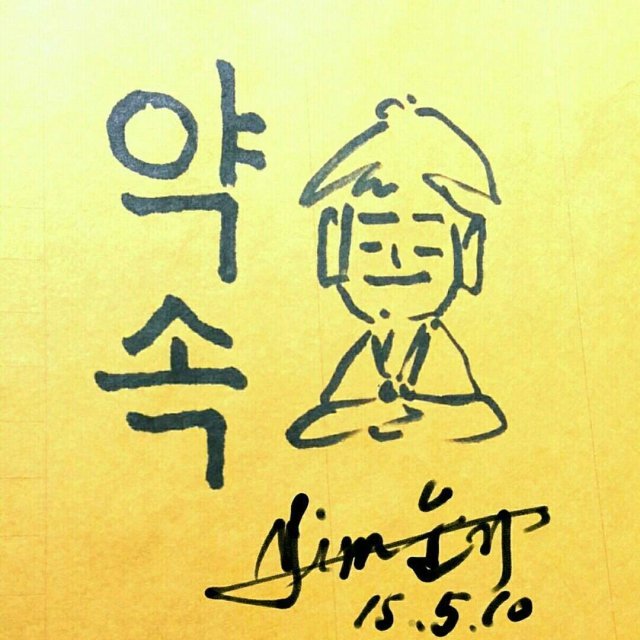 약
속
15.5.10